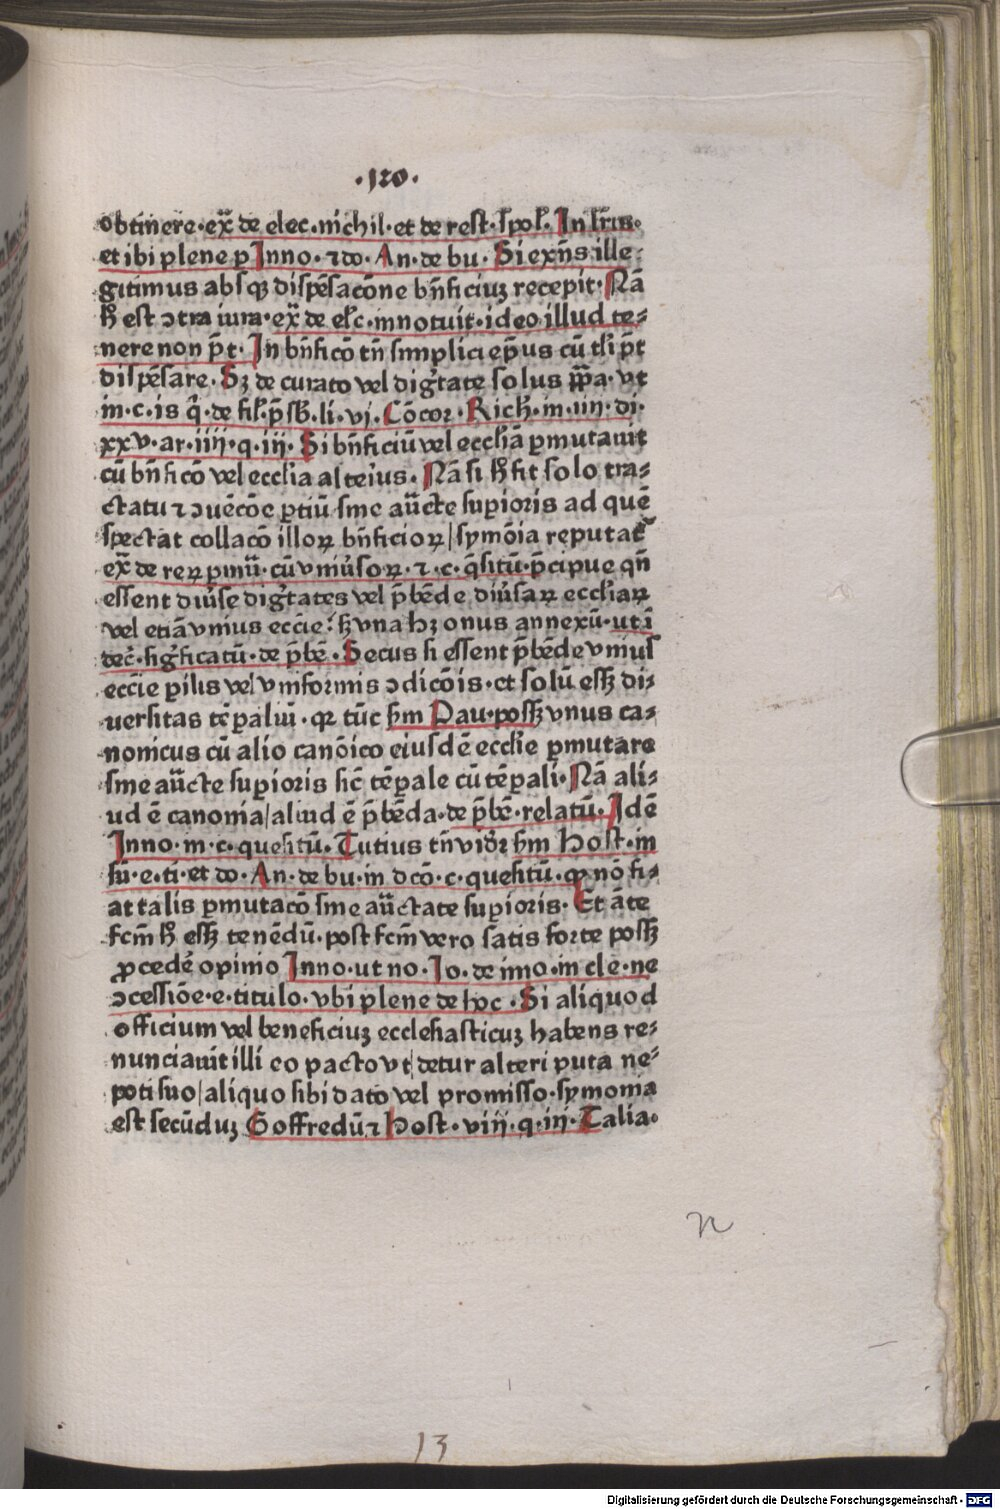 .120.
obtinere·ex̄ de elec·nichil·et de rest·spol᷑·In lr̄is·
et ibi plene p Inno·⁊ do·An·de bu·Si exn̄s ille-
gitimus absqꝫ dispēsacōne bn̄ficiuꝫ recepit·Nā
h̄ est ↄtra iura·ex̄ de elc̄·innotuit·ideo illud te-
nere non p̄t·In bn̄ficō tn̄ simplici ep̄us cū tli p̄t
dispēsare·Sꝫ de curato vel diḡtate solus pp̄a·vt
in·c·is q̄·de fil᷑·p̄sb̄·li·vj·Cōcor·Rich̄·in·iiii·di·
xxv·ar·iiii·q·iij·Si bn̄ficiū vel eccliā ꝑmutauit
cū bn̄ficō vel ecclia alteiꝰus·Nā si h̄ fit solo tra-
ctatu ⁊ ↄuēcōe ꝑtiū sine auc̄te suꝑioris ad quē
spectat collacō illoꝝ bn̄ficioꝝ/symōia reputat᷑
ex̄ de reꝝ ꝑmū·cū vniūsoꝝ·⁊·c·q̄sitū·p̄cipue qn̄
essent diūse diḡtates vel p̄bēde diūsaꝝ eccliaꝝ
vel etiā vnius eccīe·sꝫ vna hꝫ onus annexū·ut ī
dec̄·siḡficatū·de p̄bē·Secus si essent p̄bēde vnius
eccīe ꝑilis vel vniformis ↄdicōis·et solū essꝫ di-
uersitas tēꝑaliū·qꝛ tūc sm̄ Dau·possꝫ vnus ca-
nonicus cū alio canōico eiusdē ecclie ꝑmutare
sine auc̄te suꝑioris sic̄ tēꝑale cū tēꝑali·Nā ali-
ud ē canonia/aliud ē p̄bēda·de p̄bē·relatū·Idē
Inno·in·c·quesitū·Tutius tn̄ vidr̄ sm̄ Host·in
sū·e·ti·et do·An·de bu·in dcō·c·quesitū·ꝙ nō fi-
at talis ꝑmutacō sine auc̄tate suꝑioris·Et āte
fcm̄ h̄ essꝫ tenēdū·post fcm̄ vero satis forte possꝫ
ꝓcedē opinio Inno·ut no·Io·de imo·in cle·ne
ↄcessiōe·e·titulo·vbi plene de hoc·Si aliquod
officium vel beneficiuꝫ ecclesiasticuꝫ habens re-
nunciauit illi eo pacto vt/detur alteri puta ne-
poti suo/aliquo sibi dato vel promisso·symonia
est secūduꝫ Goffredū ⁊ Host·viij·q·iij·Talia·
n
13
Digitalisierung gefördert durch die Deutsche Forschungsgemeinschaft - DFG